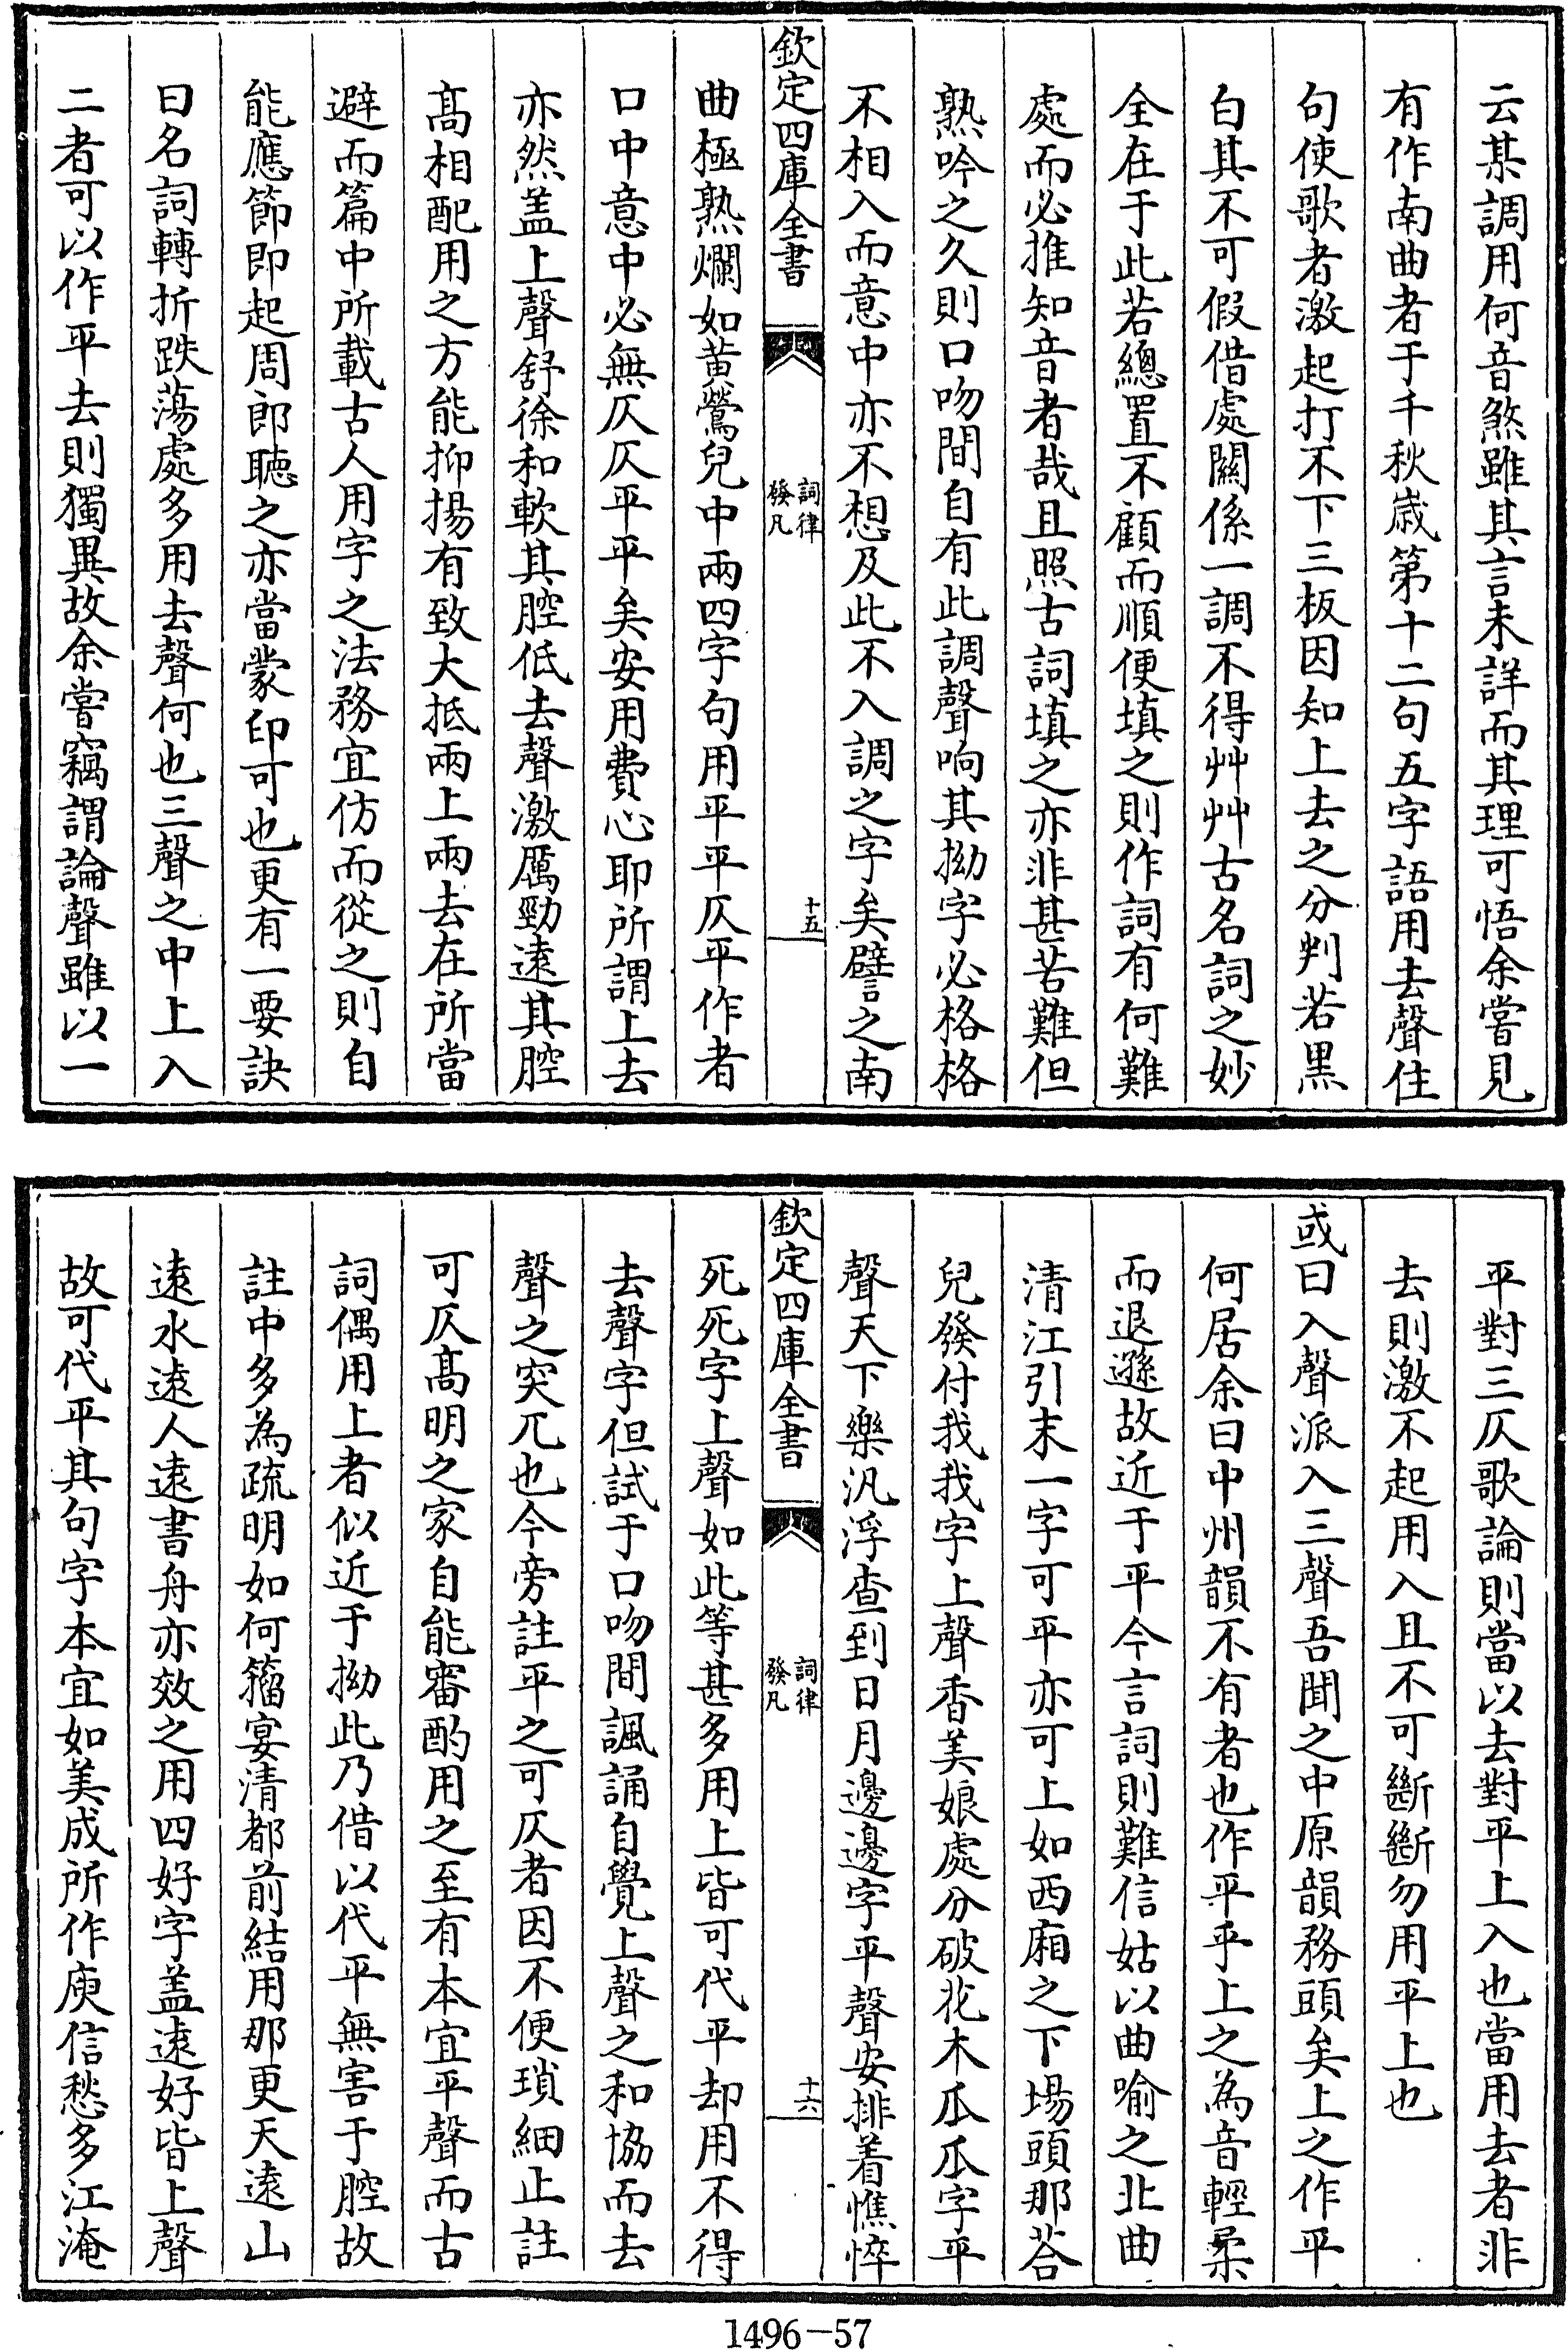 云某調用何音煞雖其言未詳而其理可悟余嘗見
有作南曲者于千秋歲第十二句五字語用去聲住
句使歌者激起打不下三板因知上去之分判若黑
白其不可假借處關係一調不得艸艸古名詞之妙
全在于此若總置不顧而順便填之則作詞有何難
處而必推知音者哉且照古詞填之亦非甚苦難但
熟吟之久則口吻間自有此調聲响其拗字必格格
不相入而意中亦不想及此不入調之字矣譬之南
欽定四庫全書
詞律
發凡
十五
曲極熟爛如黃鶯兒中兩四字句用平平仄平作者
口中意中必無仄仄平平矣安用費心耶所謂上去
亦然盖上聲舒徐和軟其腔低去聲激厲勁遠其腔
髙相配用之方能抑揚有致大抵兩上兩去在所當
避而篇中所載古人用字之法務宜仿而從之則自
能應節即起周郎聽之亦當蒙印可也更有一要訣
曰名詞轉折跌蕩處多用去聲何也三聲之中上入
二者可以作平去則獨異故余嘗竊謂論聲雖以一
平對三仄歌論則當以去對平上入也當用去者非
去則激不起用入且不可斷斷勿用平上也
或曰入聲派入三聲吾聞之中原韻務頭矣上之作平
何居余曰中州韻不有者也作平乎上之為音輕柔
而退遜故近于平今言詞則難信姑以曲喻之北曲
清江引末一字可平亦可上如西廂之下場頭那荅
兒發付我我字上聲香美娘處分破花木瓜瓜字平
聲天下樂汎浮查到日月邊邊字平聲安排着憔悴
欽定四庫全書
詞律
發凡
十六
死死字上聲如此等甚多用上皆可代平却用不得
去聲字但試于口吻間諷誦自覺上聲之和協而去
聲之突兀也今旁註平之可仄者因不便瑣細止註
可仄髙明之家自能審酌用之至有本宜平聲而古
詞偶用上者似近于拗此乃借以代平無害于腔故
註中多為疏明如何籀宴清都前結用那更天遠山
遠水遠人遠書舟亦效之用四好字盖遠好皆上聲
故可代平其句字本宜如美成所作庾信愁多江淹
1496-57